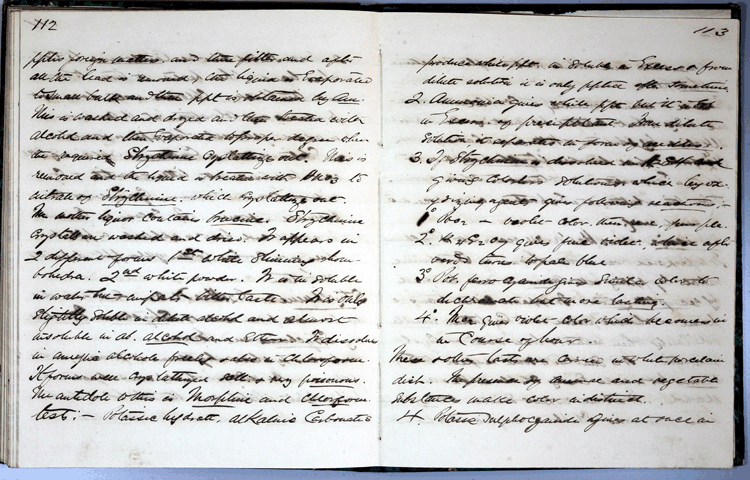 112
ppts foreign matters, and then filter and after
all the lead is removed, the liquid is Evaporated
to small bulk and then ppt is obtained by Am.
This is washed and dryed and then treated with
alcohol and then Evaporated to proper degree when
the required Strychnine Crystallize out. This is
removed and the liquid is treated with HNO3 to
nitrate of Strychnine, which Crystallize out
The mother liquor Contains brucine. Strychnine
Crystals are washed and dried. It appears in
2 different forms 1st White Shining rhom-
bohedra. 2nd white powder. It is in soluble
in water but imparts bitter taste. It is only
slightly soluble in dilute alcohol and almost
insoluble in al. alcohol and Ether. It dissolves
in amylic alcohole freely also in Chloroform.
It forms well Crystallized salts & very poisonous.
The antidote to this is Morphine and Chloroform
test: – Potassic hydrate, alkaline Carbonates
113
produce white ppt. in soluble in Excess & from
dilute solution it is only ppted after sometime
2. Ammonia gives white ppt but it is
in Excess of precipitant. From dilute
Solution it separates in form of needles.
3. If Strychnine is dissolved in
giving Colorless Solution, which by ox-
ydizing agents gives following reactions, –
1° – violet color then red, purple.
2° gives fine violet, which after
wards turns to pale blue.
3° Pot. ferro Cyanide gives Similar color to
dichromate but more lasting.
4° gives violet color which becomes in
in Course of hour.
These color tests are seen in white porcelain
dish. The presence of animal and vegetable
Substances make color indistinct.
4. Potassic Sulphocyanide gives at once in